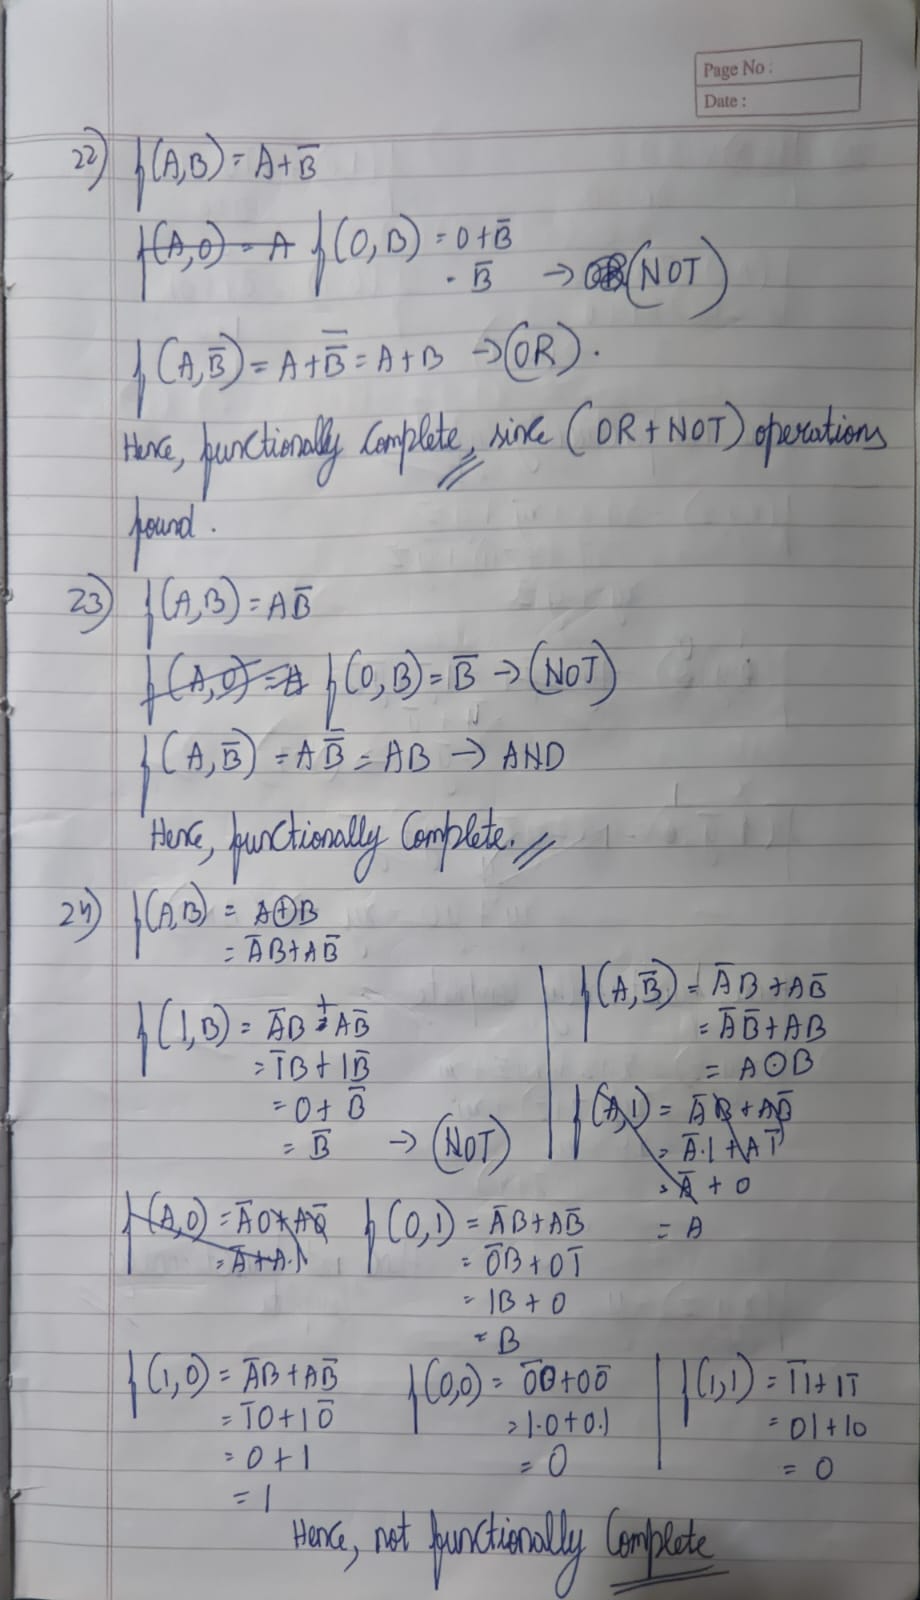 Page No :
Date :
22) f(A,B) = A+B̅
f(A,0) = A f(0,B) = 0+B̅
= B̅ → (NOT)
f(A,B̅) = A+B̿ = A+B → (OR).
Hence, functionally Complete, since (OR+NOT) operations
found.
23) f(A,B) = AB̅
f(A,0) = A f(0,B) = B̅ → (NOT)
f(A,B̅) = AB̿ = AB → AND
Hence, functionally Complete.
24) f(A,B) = A⊕B
= A̅B+AB̅
f(1,B) = A̅B + AB̅
= 1̅B + 1B̅
= 0 + B̅
= B̅ → (NOT)
f(A,B̅) = A̅B + AB̅
= A̅B̅ + AB
= A⊙B
f(A,1) = A̅B + AB̅
= A̅.1 + A1̅
= A̅ + 0
= A
f(A,0) = A̅0+A0̅
= A̅+A.1
f(0,1) = A̅B+AB̅
= 0̅B+01̅
= 1B + 0
= B
f(1,0) = A̅B + AB̅
= 1̅0+10̅
= 0+1
= 1
f(0,0) = 0̅0+00̅
= 1.0+0.1
= 0
f(1,1) = 1̅1+11̅
= 01+10
= 0
Hence, not functionally Complete